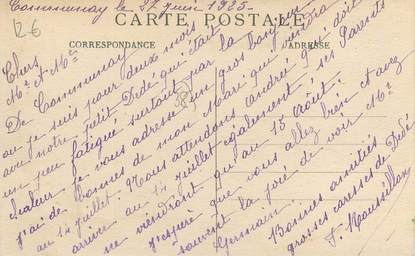 Communay le 27 juin 1925.
12€
CARTE POSTALE
CORRESPONDANCE
ADRESSE
Chers
Mr et Mme
De Communay
où je suis pour deux mois
avec notre petit Dédé qui était
un peu fatigué surtout par la
chaleur je vous adresse un gros bonjour
j'ai de bonnes de mon Mari qui viendra
au 14 juillet. Nous attendons André qui doit
arriver au 14 juillet également, ses Parents
ne viendront qu'au 15 Août.
J'espère que vous allez bien et avez
souvent la joie de voir Mr
Germain
Bonnes amitiés
grosses caresses de Dédé
J. Roussillon